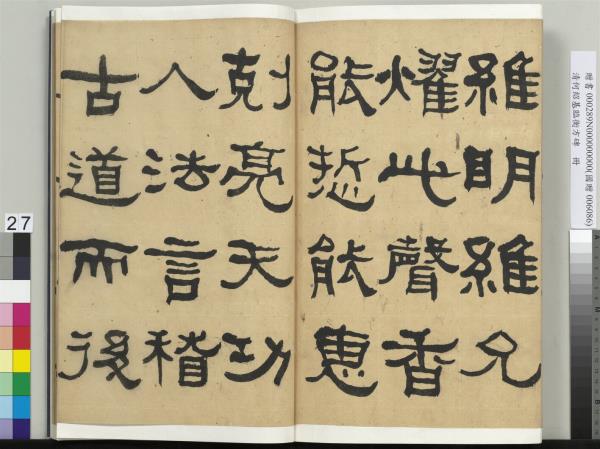 維明維允
燿此聲香
能悊能惠
剋亮天功
人法言稽
古道而後
贈書 000289N000000000(國贈 006086)
清何紹基臨衡方碑 冊
27